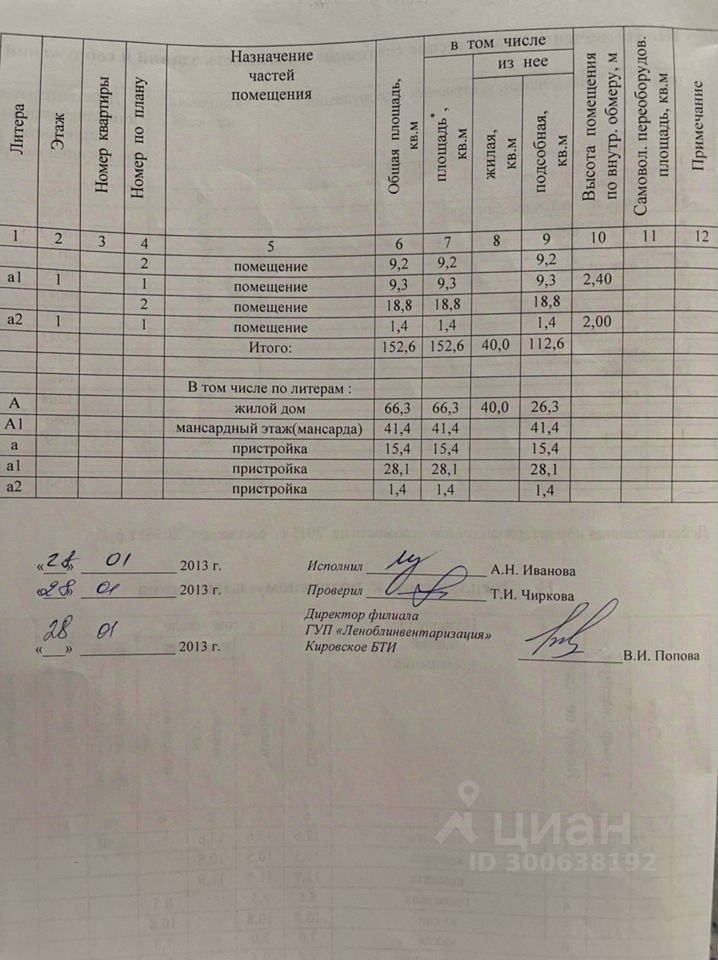 Литера
Этаж
Номер квартиры
Номер по плану
Назначение
частей
помещения
Общая площадь,
кв.м
в том числе
площадь*,
кв.м
из нее
жилая,
кв.м
подсобная,
кв.м
Высота помещения
по внутр. обмеру, м
Самовол. переоборудов.
площадь, кв.м
Примечание
1 2 3 4 5 6 7 8 9 10 11 12
2 помещение 9,2 9,2 9,2
а1 1 1 помещение 9,3 9,3 9,3 2,40
2 помещение 18,8 18,8 18,8
а2 1 1 помещение 1,4 1,4 1,4 2,00
Итого: 152,6 152,6 40,0 112,6
В том числе по литерам :
А жилой дом 66,3 66,3 40,0 26,3
А1 мансардный этаж(мансарда) 41,4 41,4 41,4
а пристройка 15,4 15,4 15,4
а1 пристройка 28,1 28,1 28,1
а2 пристройка 1,4 1,4 1,4
«28» 01 2013 г. Исполнил А.Н. Иванова
«28» 01 2013 г. Проверил Т.И. Чиркова
Директор филиала
ГУП «Леноблинвентаризация»
28 01
«__» 2013 г. Кировское БТИ В.И. Попова
циан
ID 300638192